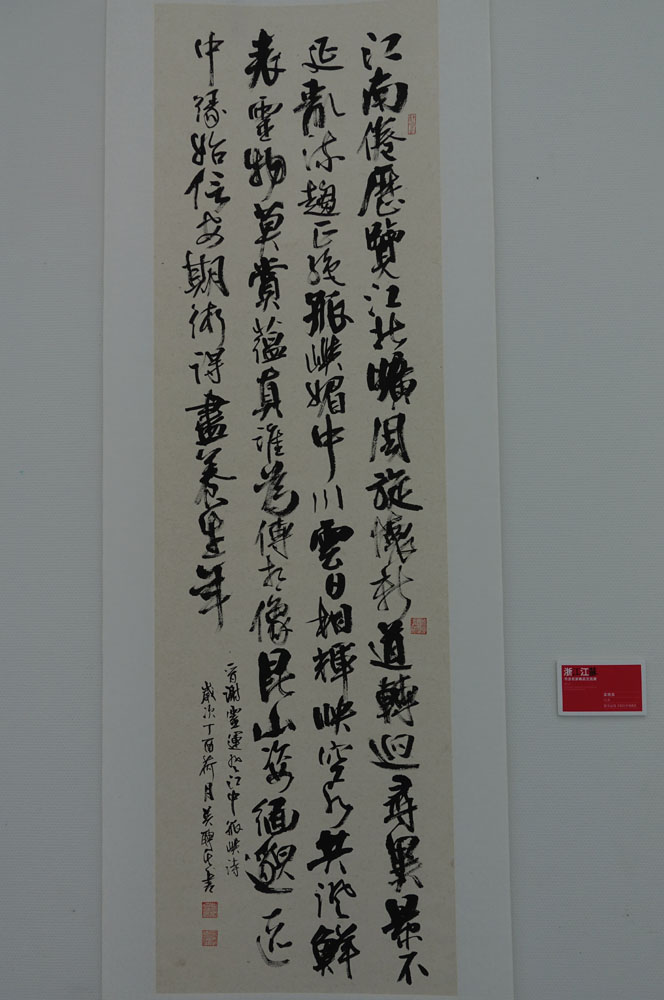 江南倦歷覽江北曠周旋懷新道轉迥尋異景不
延亂流趨正絕孤嶼媚中川雲日相輝映空水共澄鮮
表靈物莫賞蘊真誰為傳想像昆山姿緬邈區
中緣始信安期術得盡養生年
晉謝靈運登江中孤嶼詩
歲次丁酉荷月吳聯春書
浙江